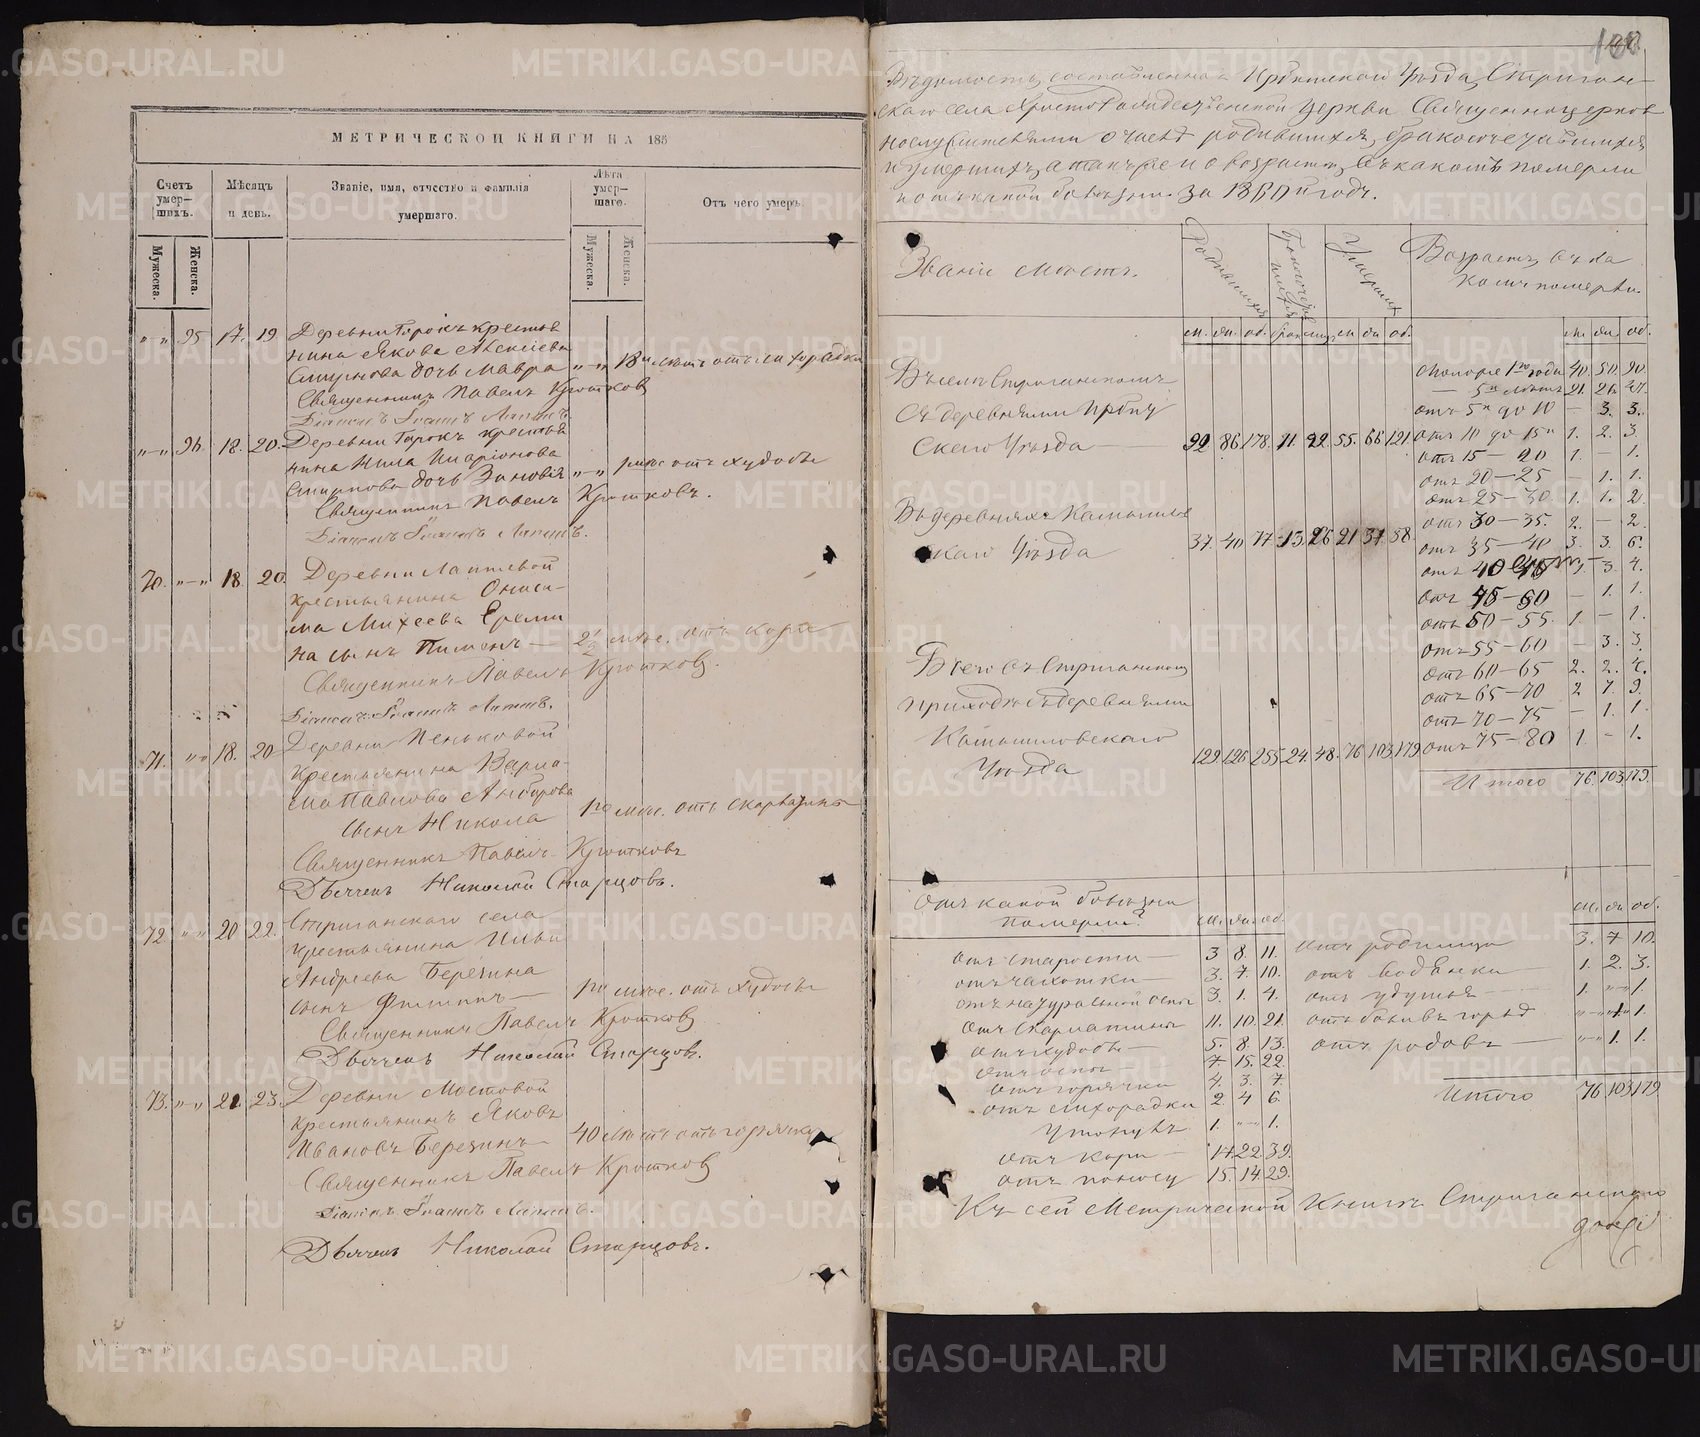 МЕТРИЧЕСКОЙ КНИГИ НА 185
Счетъ умер-шихъ.
Мѣсяцъ и день.
Званіе, имя, отчество и фамилія умершаго.
Лѣта умер-шаго.
Отъ чего умеръ.
Мужеска. Женска.
Мужеска. Женска.
„ „ 95 17. 19 Деревни Горокъ крестья
нина Якова Алексіева
Смирнова дочь Мавра „ „ 13 лѣтъ отъ лихорадки
Священникъ Павелъ Кротковъ
Діаконъ Іоаннъ
„ „ 96 18. 20. Деревни Горокъ крестья
нина Нила Иларіонова
Смирнова дочь Зиновія „ „ отъ худобы
Священникъ Павелъ Кротковъ.
Діаконъ Іоаннъ
70. „ „ 18. 20. Деревни Лаптевой
крестьянина Ониси-
ма Михеева Еремѝ
на сынъ Пименъ — 2½ мѣс. отъ кори
Священникъ Павелъ Кротковъ.
Діаконъ Іоаннъ
71. „ „ 18. 20 Деревни Пеньковой
крестьянина Варла-
ма Павлова
сынъ Никола 1го мѣс. отъ скарлатины
Священникъ Павелъ Кротковъ
Дьячекъ Николай Старцовъ.
72. „ „ 20 22. Стриганскаго села
крестьянина Ильи
Андреева Березина
сынъ Филиппъ — мѣс. отъ худобы
Священникъ Павелъ Кротковъ
Дьячекъ Николай Старцовъ.
73. „ „ 21. 23. Деревни Мостовой
крестьянинъ Яковъ
Ивановъ Березинъ — 40 лѣтъ отъ горячки
Священникъ Павелъ Кротковъ
Діаконъ Іоаннъ
Дьячекъ Николай Старцовъ.
100
Вѣдомость, составленная Ирбитскаго Уѣзда, Стриган-
скаго села Христорождественской церкви Священноцерков
нослужителями о числѣ родившихся, бракосочетавшихся
и умершихъ, а также и о возрастѣ, въ какомъ померли
и отъ какой болѣзни. за 1860й годъ.
Званіе мѣстъ.
Родившихся
Умершихъ
Возрастъ, въ ка
комъ померли.
м. ж. об.
м. ж. об.
м. ж. об.
Въ селѣ Стриганскомъ
съ деревнями Ирбит
скаго Уѣзда — 92 86 178. 11 22 55. 66 121.
Въ деревняхъ Камышлов
скаго Уѣзда 37. 40 77 13. 26 21 37. 58.
Всего въ Стриганскомъ
приходѣ съ деревнями
Камышловскаго
Уѣзда 129. 126. 255. 24. 48. 76 103. 179.
Моложе 1го года 40. 50. 90.
— 5и лѣтъ 21. 26. 47.
отъ 5и до 10 — 3. 3.
отъ 10 до 15и 1. 2. 3.
отъ 15 — 20 1. — 1.
отъ 20 — 25 — 1. 1.
отъ 25 — 30 1. 1. 2.
отъ 30 — 35. 2. — 2.
отъ 35 — 40 3. 3. 6.
отъ 40 — 45 1. 3. 4.
отъ 45 — 50 — 1. 1.
отъ 50 — 55. 1. — 1.
отъ 55 — 60 — 3. 3.
отъ 60 — 65 2. 2. 4.
отъ 65 — 70 2 7. 9.
отъ 70 — 75 — 1. 1.
отъ 75 — 80 1. — 1.
Итого 76. 103. 179.
Отъ какой болѣзни
померли?
м. ж. об.
м. ж. об.
отъ старости — 3 8. 11.
отъ чахотки 3. 7. 10.
отъ натуральной оспы 3. 1. 4.
отъ скарлатины 11. 10. 21.
отъ худобы — 5. 8. 13.
отъ оспы — 7. 15. 22.
отъ горячки 4. 3. 7.
отъ лихорадки 2. 4 6.
утонувъ 1. „ „ 1.
отъ кори — 17. 22. 39.
отъ поносу 15. 14. 29.
отъ родимца 3. 7 10.
отъ водянки — 1. 2. 3.
отъ удушья 1. „ „ 1.
отъ боли въ горлѣ „ „ 1. 1.
отъ родовъ — „ „ 1. 1.
Итого 76 103 179
Къ сей Метрической Книгѣ Стриганскаго